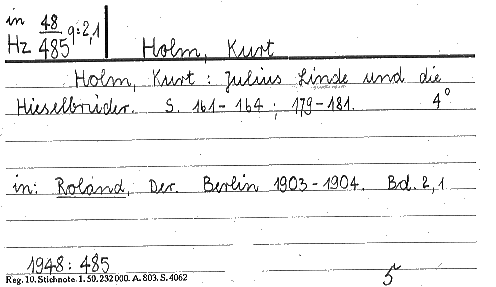 in 48 q:2,1
Hz 485 Holm, Kurt
Holm, Kurt : Julius Linde und die
Hieselbrüder. S. 161-164 ; 179-181. 4°
in: Roland, Der. Berlin 1903-1904. Bd. 2,1
1948: 485
Reg. 10. Stichnote. 1. 50. 232000. A. 803. S. 4062
5